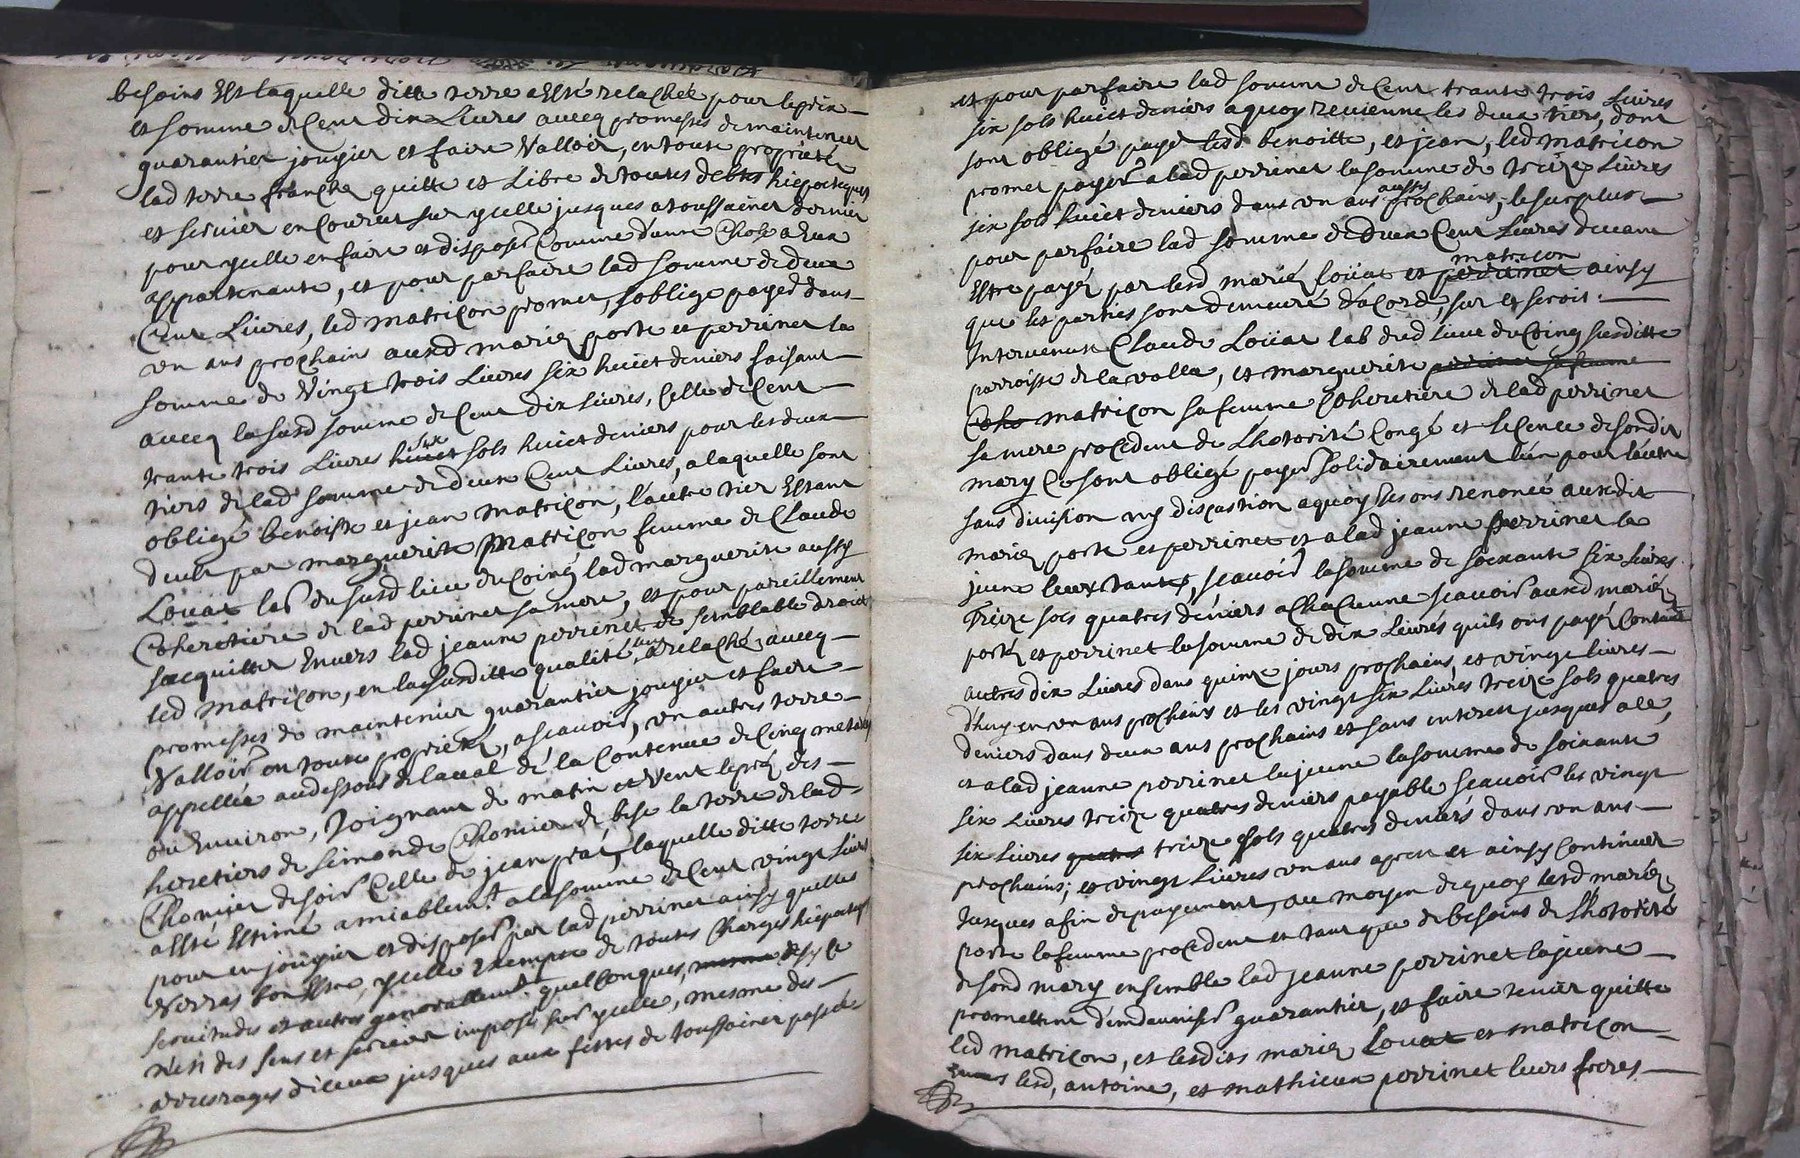 besoins Est laquelle ditte terre a Esté relachée pour le prix
et somme de Cent dix Livres avecq promesses de maintenir
guarantier jouyier et faire Valloir, en toute proprieté
lad terre franche quitte et Libre de toutes debts hiepoteques
et servier en Courut sur ycelle jusques a toussainct dernier
pour ycelle en faire et disposer Comme d'une Chose a Eux
appartenante, et pour parfaire lad somme de deux
Cent Livres, led matricon promet, s'oblige payer dans
un ans prochains ausd mariez porte et perrinet la
somme de Vingt trois Livres six huict deniers faisant
avecq la susd somme de Cent dix Livres, Celle de Cent
trante trois Livres huict six sols huict deniers pour les deux
tiers de lad somme de deux Cent Livres, a laquelle sont
obligé benoiste et jean matricon, l'autre tier Estant
deub par marguerite Matricon femme de Claude
Louat lab du susd lieu du Coing lad marguerite aussy
Coheretiere de lad perrinet sa mere, et pour pareillement
sacquitter Envers lad jeanne perrinet de semblable droict
led matricon, en la susditte qualité a relaché avecq
promesses de maintenir guarantier jouyier et faire
Valloir en toute proprieté, ascavoir, un autres terre
appellée au dessous de laval de la Contenue de Cinq metans
ou Environ, Joignant de matin et Vent le pré des
heretiers de Simonde Chomier de bise la terre de lad
Chomier de soir Celle de jean prat, laquelle ditte terre
a Esté Estimé amiablemt a la somme de Cent vingt Livres
pour en jouyier et disposer par lad perrinet ainsy quelles
Verras bon Estre, ycelle Exempte de toutes Charges hiepoteques
servitudes et autres generallemt quelconques, mesme desy ce
n'est des sens et servier imposé sur ycelle, mesme des
arreurages d'iceux jusques aux festes de toussainct passé
et pour parfaire lad somme de Cent trante trois Livres
six sols huict deniers a quoy revienne les deux tiers, dont
sont obligé payer lesd benoitte, et jean, led matricon
promet payer a lad perrinet la somme de treize Livres
six sols huict deniers dans un ans aussy prochains, le surplus
pour parfaire lad somme de deux Cent Livres devant
Estre payér par lesd mariéz loüat et perrinet matricon ainsy
que les parties sont demeuré d'acord, sur et seroit.
Intervenus Claude Loüat lab dud lieu du Coing susditte
parroisse de la valla, et marguerite perrinet sa femme
Cohe matricon sa femme Coheretiere de lad perrinet
sa mere procedent de L'hotorité Congé et Licence de sondit
mary Ce sont obligé payer solidairement l'un pour l'autre
sans division ny discustion a quoy ils ons renoncé ausdit
mariez porte et perrinet et a lad jeanne perrinet la
jeune leux tantes, scavoir la somme de soixante six Livres
Treize sols quatres deniers a Chacunne scavoir ausd mariéz
porte et perrinet la somme de dix Livres quils ons payér Contant
autres dix Livres dans quinze jours prochains, et vingt livres
d'huy en un ans prochains et les vingt six Livres treize sols quatres
deniers dans deux ans prochains et sans interest jusques a lé,
et a lad jeanne perrinet la jeune la somme de soixante
six Livres treize quatres deniers payable scavoir les vingt
six Livres quatres treize sols quatres deniers dans un ans
prochains; et vingt Livres un ans apres et ainsy Continuer
Jusques a fin de payement, au moyen de quoy lesd mariéz
porte la femme procedent et tant que de besoins de L'hotorité
de sond mary ensemble lad jeanne perrinet la jeune
promettent d'emdamniser guarantier, et faire tenier quitte
led matricon, et lesdits mariez Louat et matricon
Envers lesd, antoine, et mathieux perrinet leurs freres